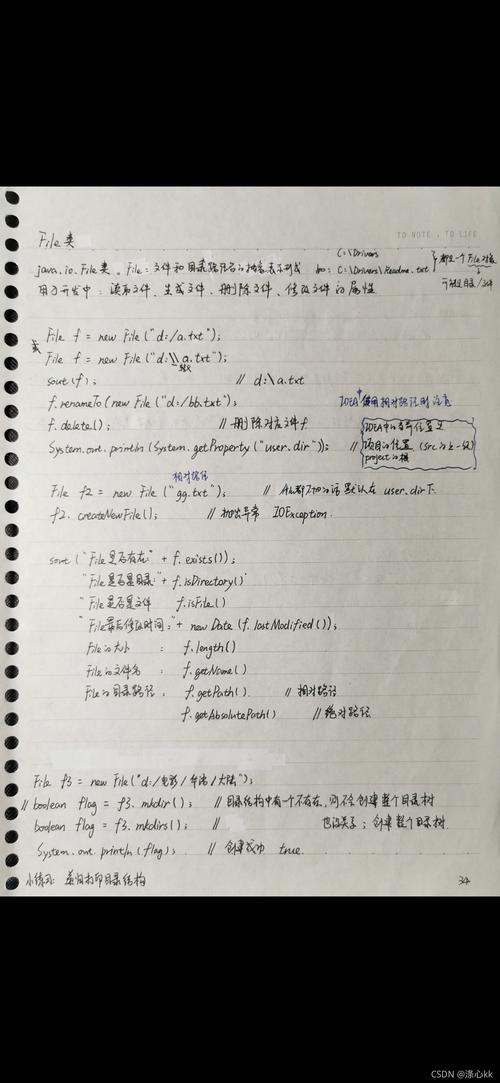 TO NOTE, TO LIFE
File 类
java.io.File类。File:文件和目录路径名的抽象表示形式 如: C:\Drivers
C:\Drivers\Readme.txt 都是一个File对象
可能是目录/文件
用于开发中:读取文件、生成文件、删除文件、修改文件的属性
File f = new File("d:/a.txt");
或 File f = new File("d:\\a.txt");
sout(f); // d:\a.txt
f.renameTo(new File("d:/bb.txt");
IDEA中使用相对路径时注意
f.delete(); // 删除对应文件f
System.out.println(System.getProperty("user.dir")); //
IDEA中的当前位置是
项目的位置 (src的上一级)
project的根
相对路径
File f2 = new File("gg.txt"); // 默认在 user.dir下.
f2.createNewFile(); // 抛出异常 IOException.
sout("File是否存在" + f.exists());
"File是否是目录:" + f.isDirectory()
"File是否是文件 f.isFile()
"File最后修改时间:"+ new Date(f.lastModified());
File的大小 : f.length()
File的文件名 : f.getName()
File的目录路径: f.getPath() // 相对路径
f.getAbsolutePath() // 绝对路径
File f3 = new File("d:/电影/华语/大陆");
// boolean flag = f3.mkdir(); // 目录结构中有一个不存在,则不会创建整个目录树
boolean flag = f3.mkdirs(); // 也没关系;创建整个目录树
System.out.println(flag); // 创建成功 true.
小练习: 递归打印目录结构
34
CSDN @涤心kk